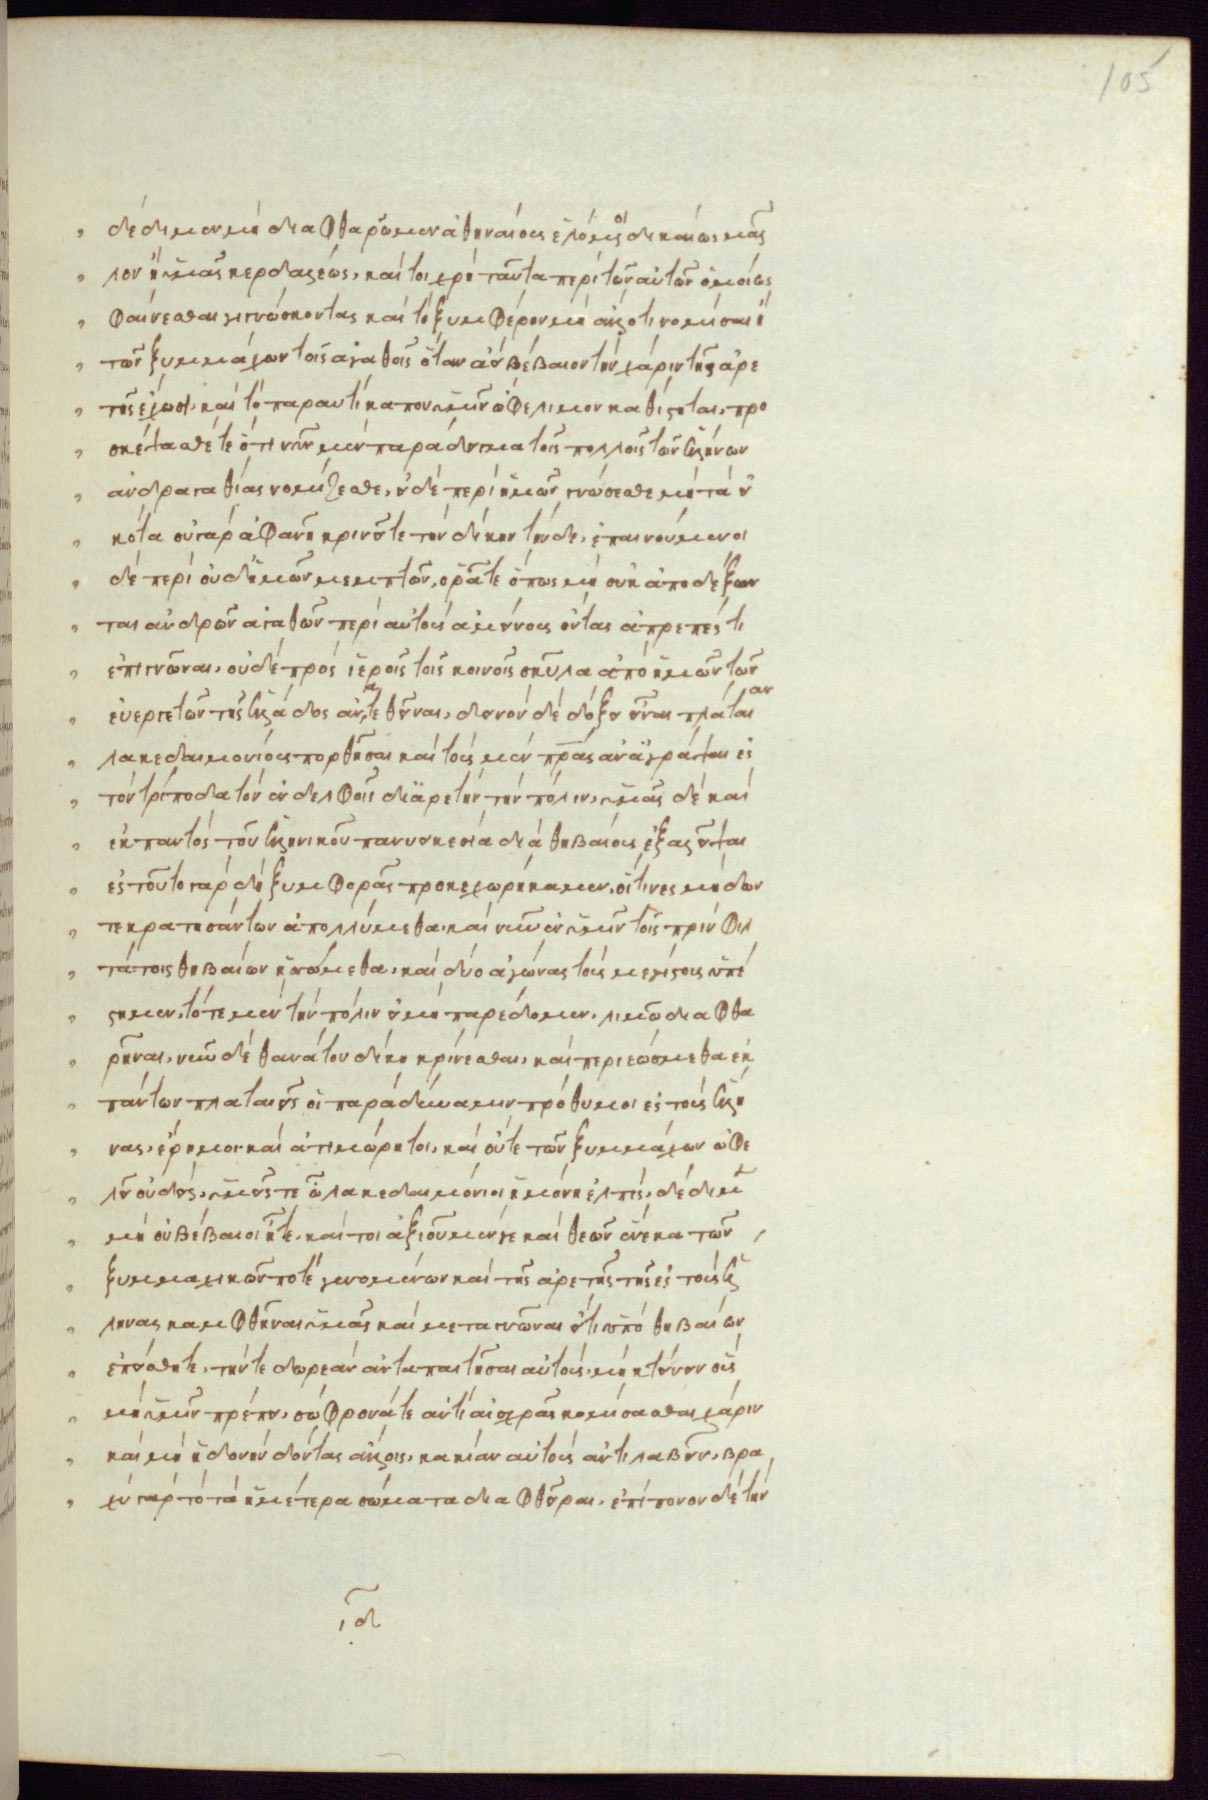 δέδιμεν μὴ διαφθαρῶμεν ἀθηναίους ἑλόμενοι δικαίως μᾶλ
λον ἢ ὑμᾶς κερδαλέως, καίτοι χρὴ ταῦτα περὶ τῶν αὐτῶν ὁμοίως
φαίνεσθαι γιγνώσκοντας καὶ τὸ ξυμφέρον μὴ ἄλλο τι νομίσαι ἢ
τῶν ξυμμάχων τοῖς ἀγαθοῖς ὅταν ἀεὶ βέβαιον τὴν χάριν τῆς ἀρε
τῆς ἔχωσι, καὶ τὸ παραυτίκα που ὑμῖν ὠφέλιμον καθίσταται, προ
σκέψασθέ τε ὅτι νῦν μὲν παράδειγμα τοῖς πολλοῖς τῶν ἑλλήνων
ἀνδραγαθίας νομίζεσθε, εἰ δὲ περὶ ἡμῶν γνώσεσθε μὴ τὰ εἰ
κότα οὐ γὰρ ἀφανῆ κρινεῖτε τὴν δίκην τήνδε, ἐπαινούμενοι
δὲ περὶ οὐδ' ἡμῶν μεμπτῶν, ὁρᾶτε ὅπως μὴ οὐκ ἀποδέξων
ται ἀνδρῶν ἀγαθῶν περὶ αὐτοὺς ἀμείνους ὄντας ἀπρεπές τι
ἐπιγνῶναι, οὐδὲ πρὸς ἱεροῖς τοῖς κοινοῖς σκῦλα ἀπὸ ἡμῶν τῶν
εὐεργετῶν τῆς ἑλλάδος ἀνατεθῆναι, δεινὸν δὲ δόξει εἶναι πλάταιαν
λακεδαιμονίους πορθῆσαι καὶ τοὺς μὲν πρας ἀναγράψαι ἐς
τὸν τρίποδα τὸν ἐν δελφοῖς δι' ἀρετὴν τὴν πόλιν, ὑμᾶς δὲ καὶ
ἐκ παντὸς τοῦ ἑλληνικοῦ πανοικεσίᾳ διὰ θηβαίους ἐξαλεῖψαι
ἐς τοῦτο γὰρ δὴ ξυμφορᾶς προκεχωρήκαμεν, οἵτινες μήδων
τε κρατησάντων ἀπολλύμεθα, καὶ νῦν ἐν ὑμῖν τοῖς πρὶν φιλ
τάτοις θηβαίων ἡσσώμεθα, καὶ δύο ἀγώνας τοὺς μεγίστους ὑπέ
στημεν, τότε μὲν τὴν πόλιν εἰ μὴ παρέδομεν, λιμῷ διαφθα
ρῆναι, νῦν δὲ θανάτου δίκῃ κρίνεσθαι, καὶ περιεώσμεθα ἐκ
πάντων πλαταιεῖς οἱ παρὰ δύναμιν πρόθυμοι ἐς τοὺς ἕλλη
νας, ἔρημοι καὶ ἀτιμώρητοι, καὶ οὔτε τῶν ξυμμάχων ὠφε
λεῖ οὐδείς, ὑμεῖς τε ὦ λακεδαιμόνιοι ἡ μόνη ἐλπίς, δέδιμεν
μὴ οὐ βέβαιοι ἦτε, καίτοι ἀξιοῦμέν γε καὶ θεῶν ἕνεκα τῶν
ξυμμαχικῶν ποτὲ γενομένων καὶ τῆς ἀρετῆς τῆς ἐς τοὺς ἕλ
ληνας καμφθῆναι ὑμᾶς καὶ μεταγνῶναι ὅτι ὑπὸ θηβαίων
ἐπείσθητε, τήν τε δωρεὰν ἀνταπαιτῆσαι αὐτοὺς, μὴ κτείνειν οὓς
μὴ ὑμῖν πρέπει, σώφρονά τε ἀντὶ αἰσχρᾶς κομίσασθαι χάριν
καὶ μὴ ἡδονὴν δόντας ἄλλοις, κακίαν αὐτοὺς ἀντιλαβεῖν, βρα
χὺ γὰρ τὸ τὰ ἡμέτερα σώματα διαφθεῖραι, ἐπίπονον δὲ τὴν
ιδ
105